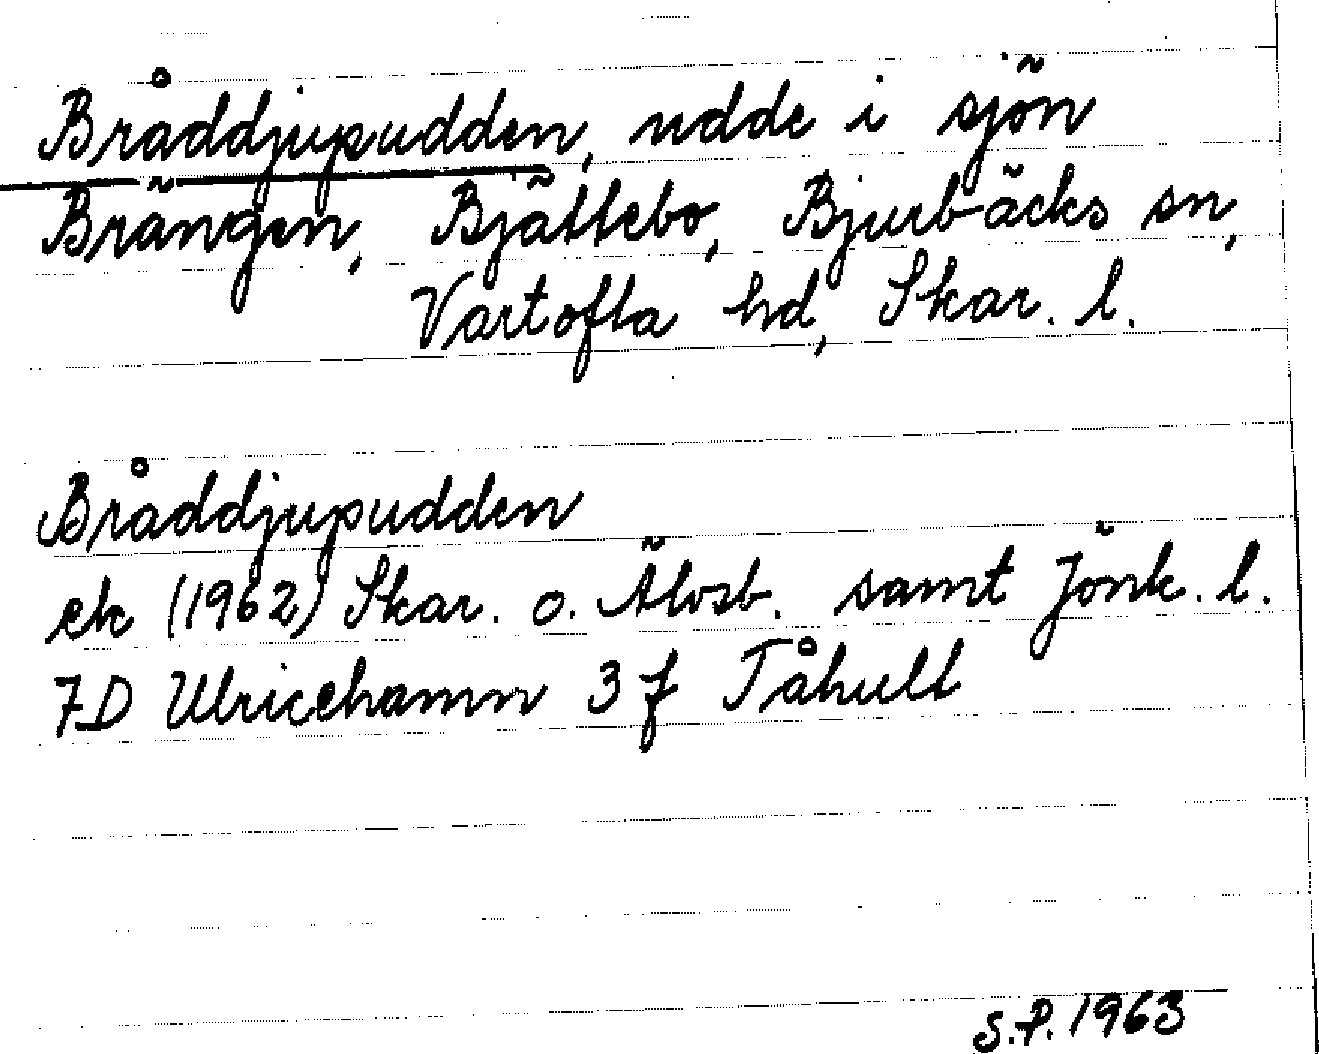 Bråddjupudden, udde i sjön
Brängen, Bjättebo, Bjurbäcks sn,
Vartofta hd, Skar. l.
Bråddjupudden
ek (1962) Skar. o. Älvsb. samt Jönk. l.
7D Ulricehamn 3 f Tåhult
S.P. 1963